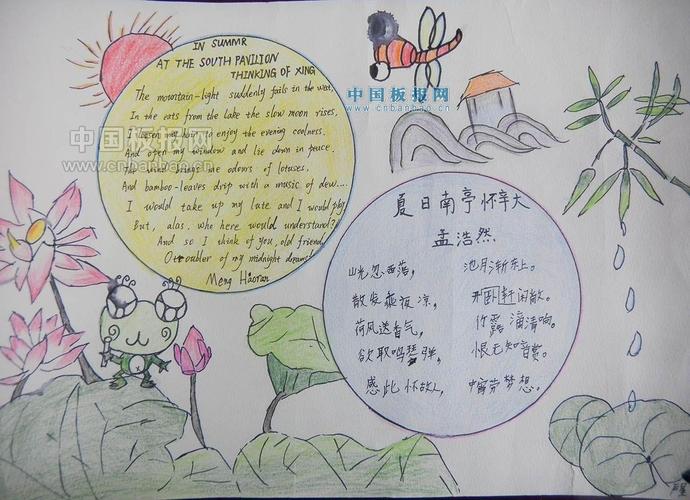 IN SUMMR
AT THE SOUTH PAVILION
THINKING OF XING
The mountain-light suddenly fails in the west,
In the eats from the lake the slow moon rises.
I loosen my hair to enjoy the evening coolness.
And open my window and lie down in peace.
The wind brings me odors of lotuses.
And bamboo-leaves drip with a music of dew....
I would take up my lute and I would play
But, alas, who here would understand?
And so I think of you, old friend,
O troubler of my midnight dreams!
Meng Haoran
中国板报网
www.cnbanbao.cn
中国板报网
www.cnbanbao.cn
夏日南亭怀辛大
孟浩然
山光忽西落, 池月渐东上。
散发乘夜凉, 开卧轩闲敞。
荷风送香气, 竹露滴清响。
欲取鸣琴弹, 恨无知音赏。
感此怀故人, 中宵劳梦想。